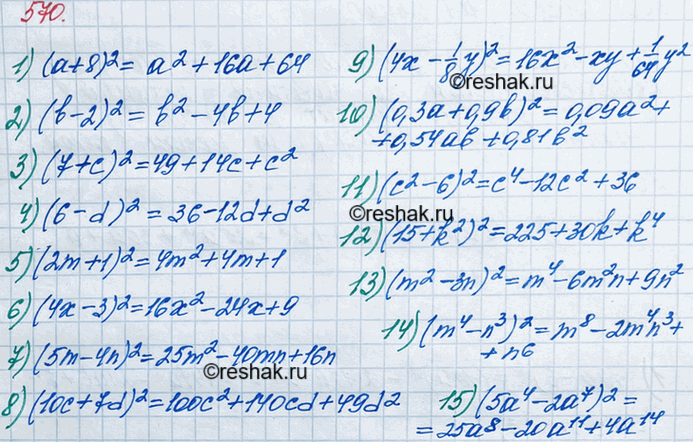 570.
1) (a+8)² = a² + 16a + 64
2) (b-2)² = b² - 4b + 4
3) (7+c)² = 49 + 14c + c²
4) (6-d)² = 36 - 12d + d²
5) (2m+1)² = 4m² + 4m + 1
6) (4x-3)² = 16x² - 24x + 9
7) (5m-4n)² = 25m² - 40mn + 16n
8) (10c+7d)² = 100c² + 140cd + 49d²
9) (4x - 1/8 y)² = 16x² - xy + 1/64 y²
©reshak.ru
10) (0,3a + 0,9b)² = 0,09a² +
+ 0,54ab + 0,81b²
11) (c² - 6)² = c⁴ - 12c² + 36
©reshak.ru
12) (15 + k²)² = 225 + 30k + k⁴
13) (m² - 3n)² = m⁴ - 6m²n + 9n²
14) (m⁴ - n³)² = m⁸ - 2m⁴n³ +
+ n6
©reshak.ru
15) (5a⁴ - 2a⁷)² =
= 25a⁸ - 20a¹¹ + 4a¹⁴